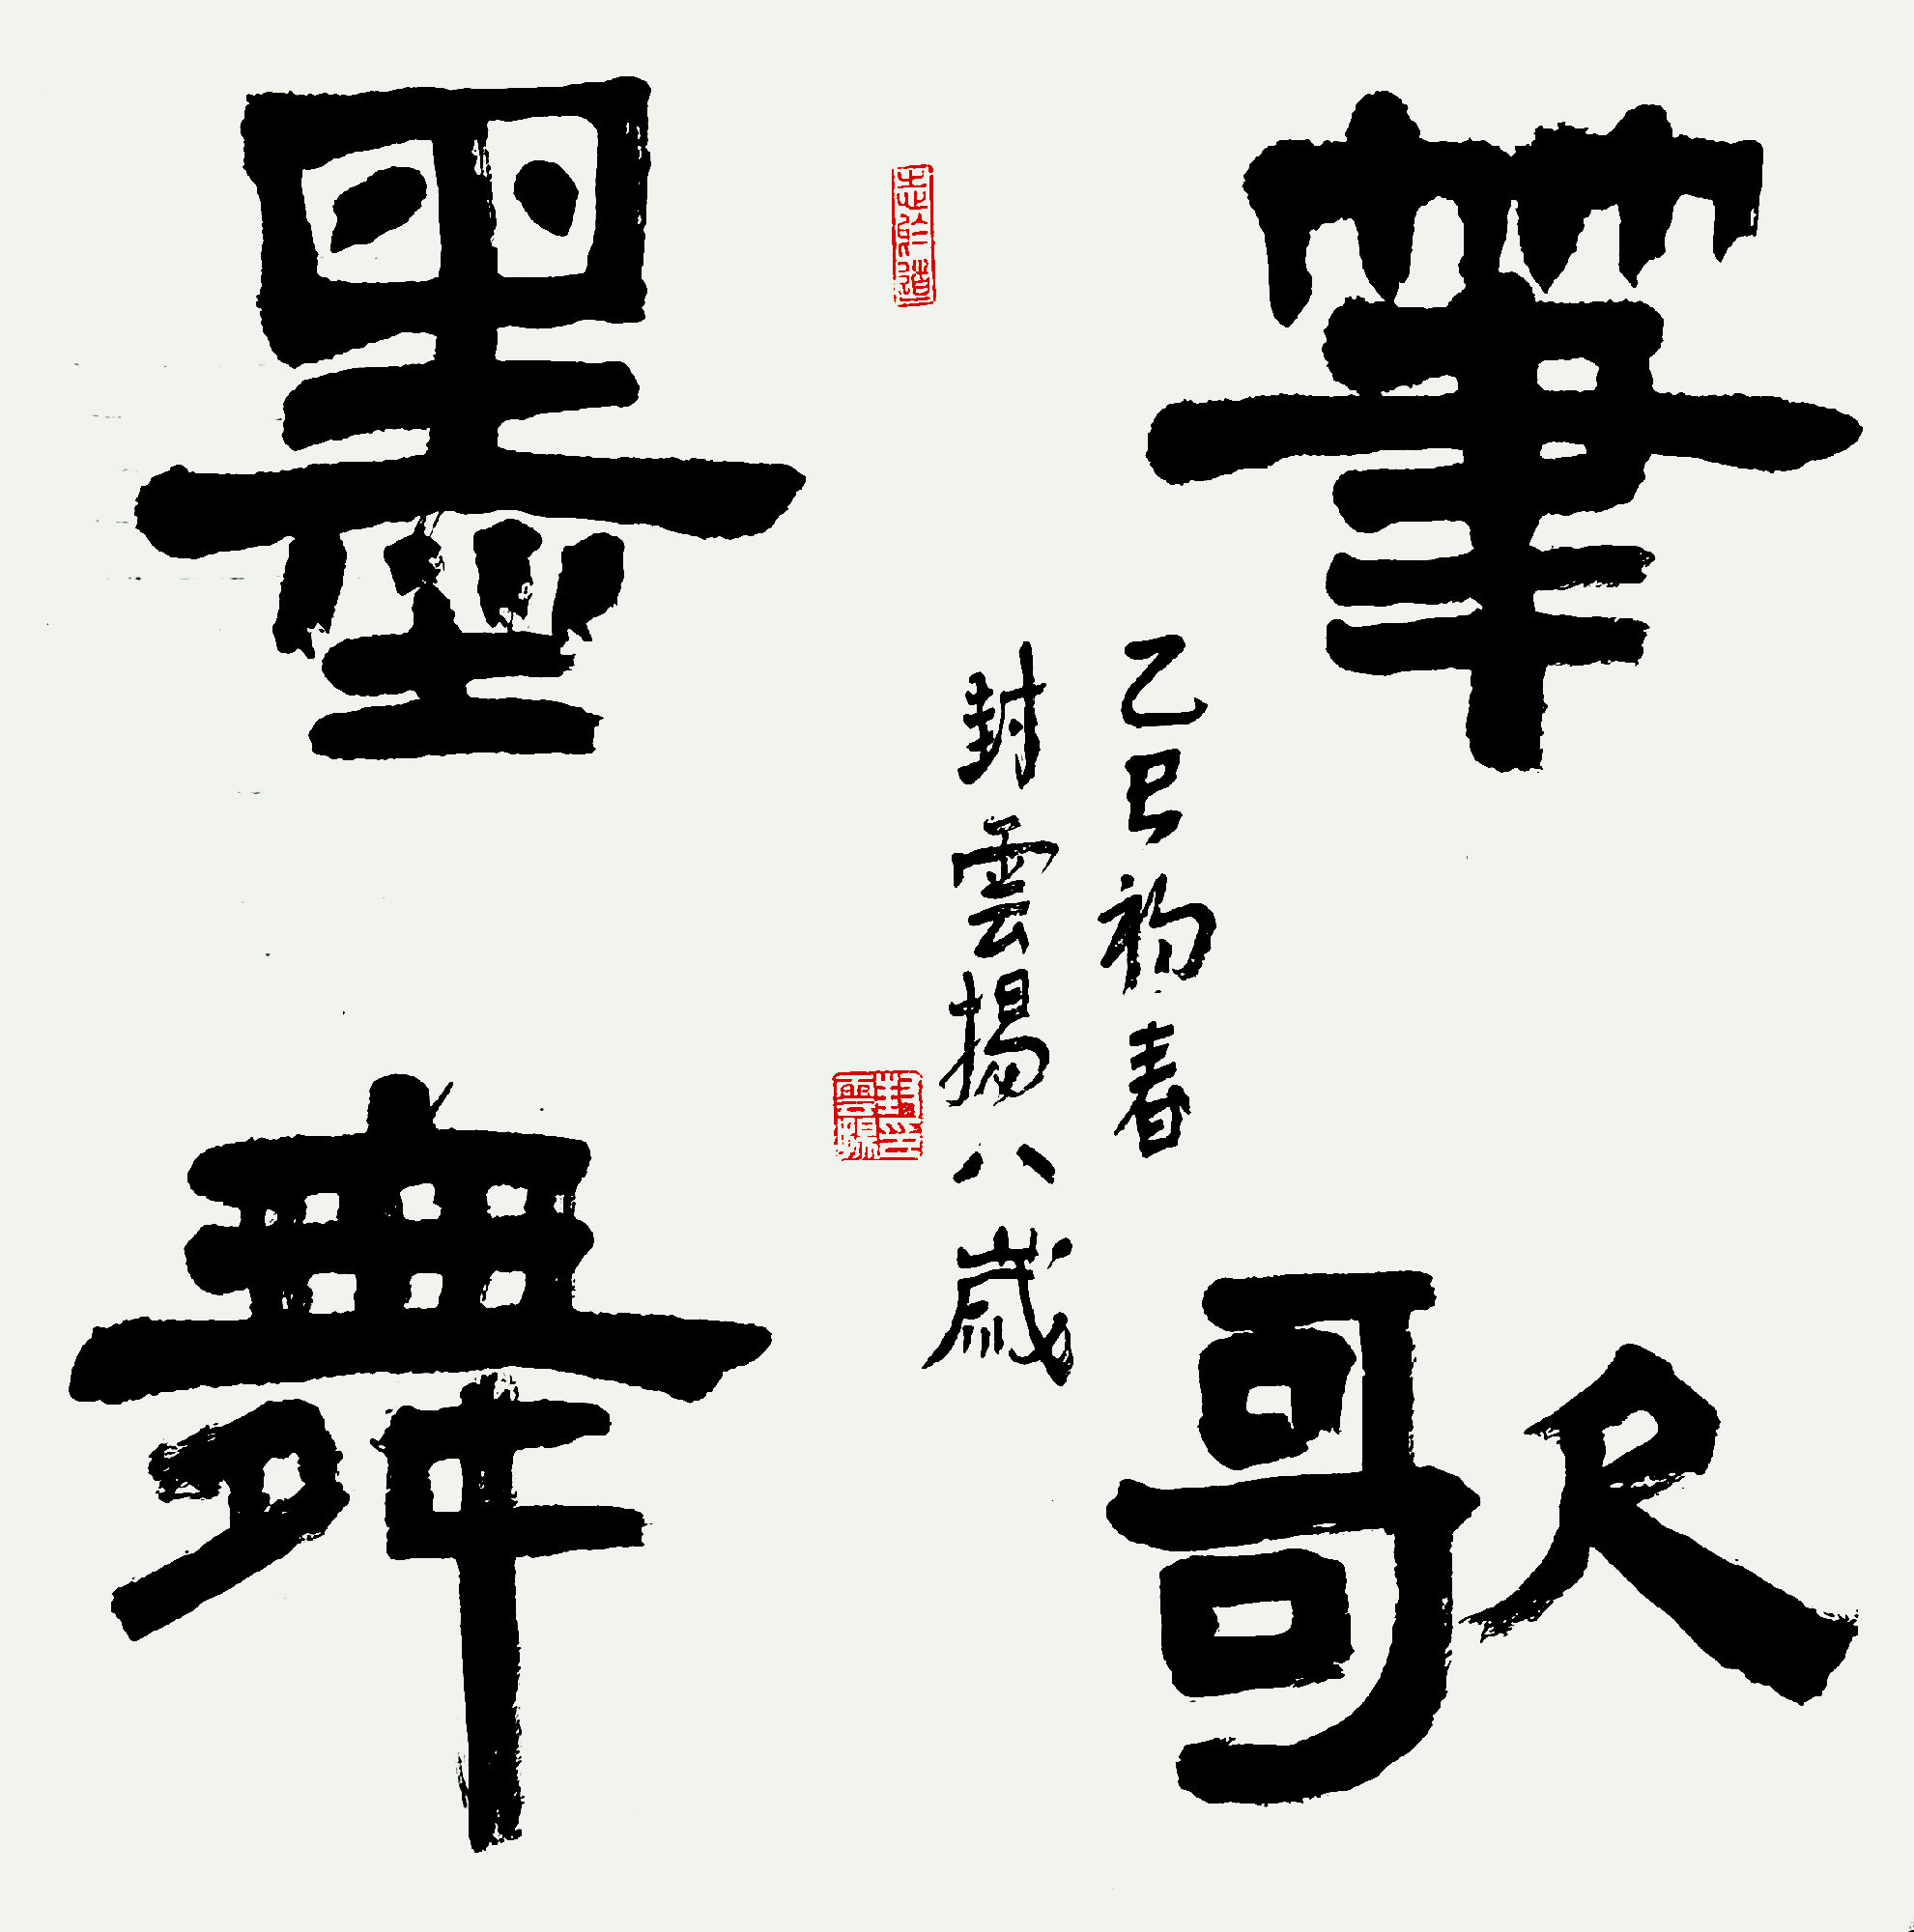 筆歌
墨舞
乙巳初春
封雲揚八歲
志於道